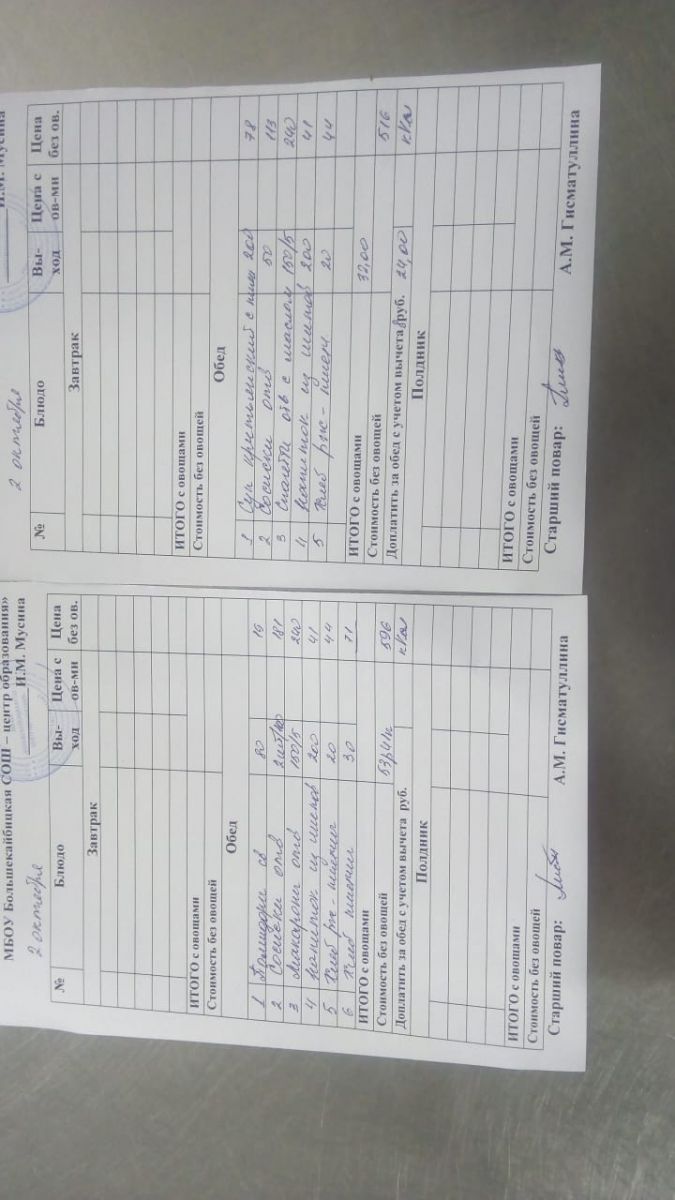 МБОУ Большекайбицкая СОШ – центр образования»
И.М. Мусина
2 октября
№ Блюдо Вы-ход Цена с ов-ми Цена без ов.
Завтрак
ИТОГО с овощами
Стоимость без овощей
Обед
1 Помидоры св 80 15
2 Сосиски отв 181
3 Макароны отв 150/5 240
4 напиток из шипов 200 41
5 Хлеб рж-пшенич 20 44
6 Хлеб пшенич 30 71
ИТОГО с овощами
Стоимость без овощей 53р41к 596
Доплатить за обед с учетом вычета руб. кКал
Полдник
ИТОГО с овощами
Стоимость без овощей
Старший повар: А.М. Гисматуллина
И.М. Мусина
2 октября
№ Блюдо Вы-ход Цена с ов-ми Цена без ов.
Завтрак
ИТОГО с овощами
Стоимость без овощей
Обед
1 Суп крестьянский с 200 78
2 Сосиски отв 50 113
3 Спагети отв с маслом 150/5 240
4 напиток из шипов 200 41
5 Хлеб рж-пшен 20 44
ИТОГО с овощами 32,00
Стоимость без овощей 516
Доплатить за обед с учетом вычета руб. 24,00 кКал
Полдник
ИТОГО с овощами
Стоимость без овощей
Старший повар: А.М. Гисматуллина